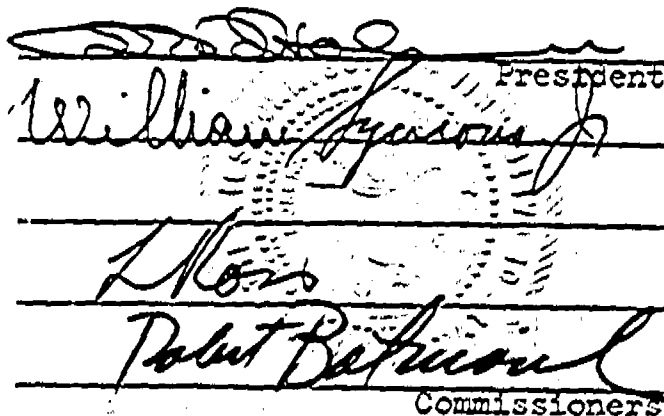 President
William Symons Jr
L Ross
Robert Batinovich
Commissioners